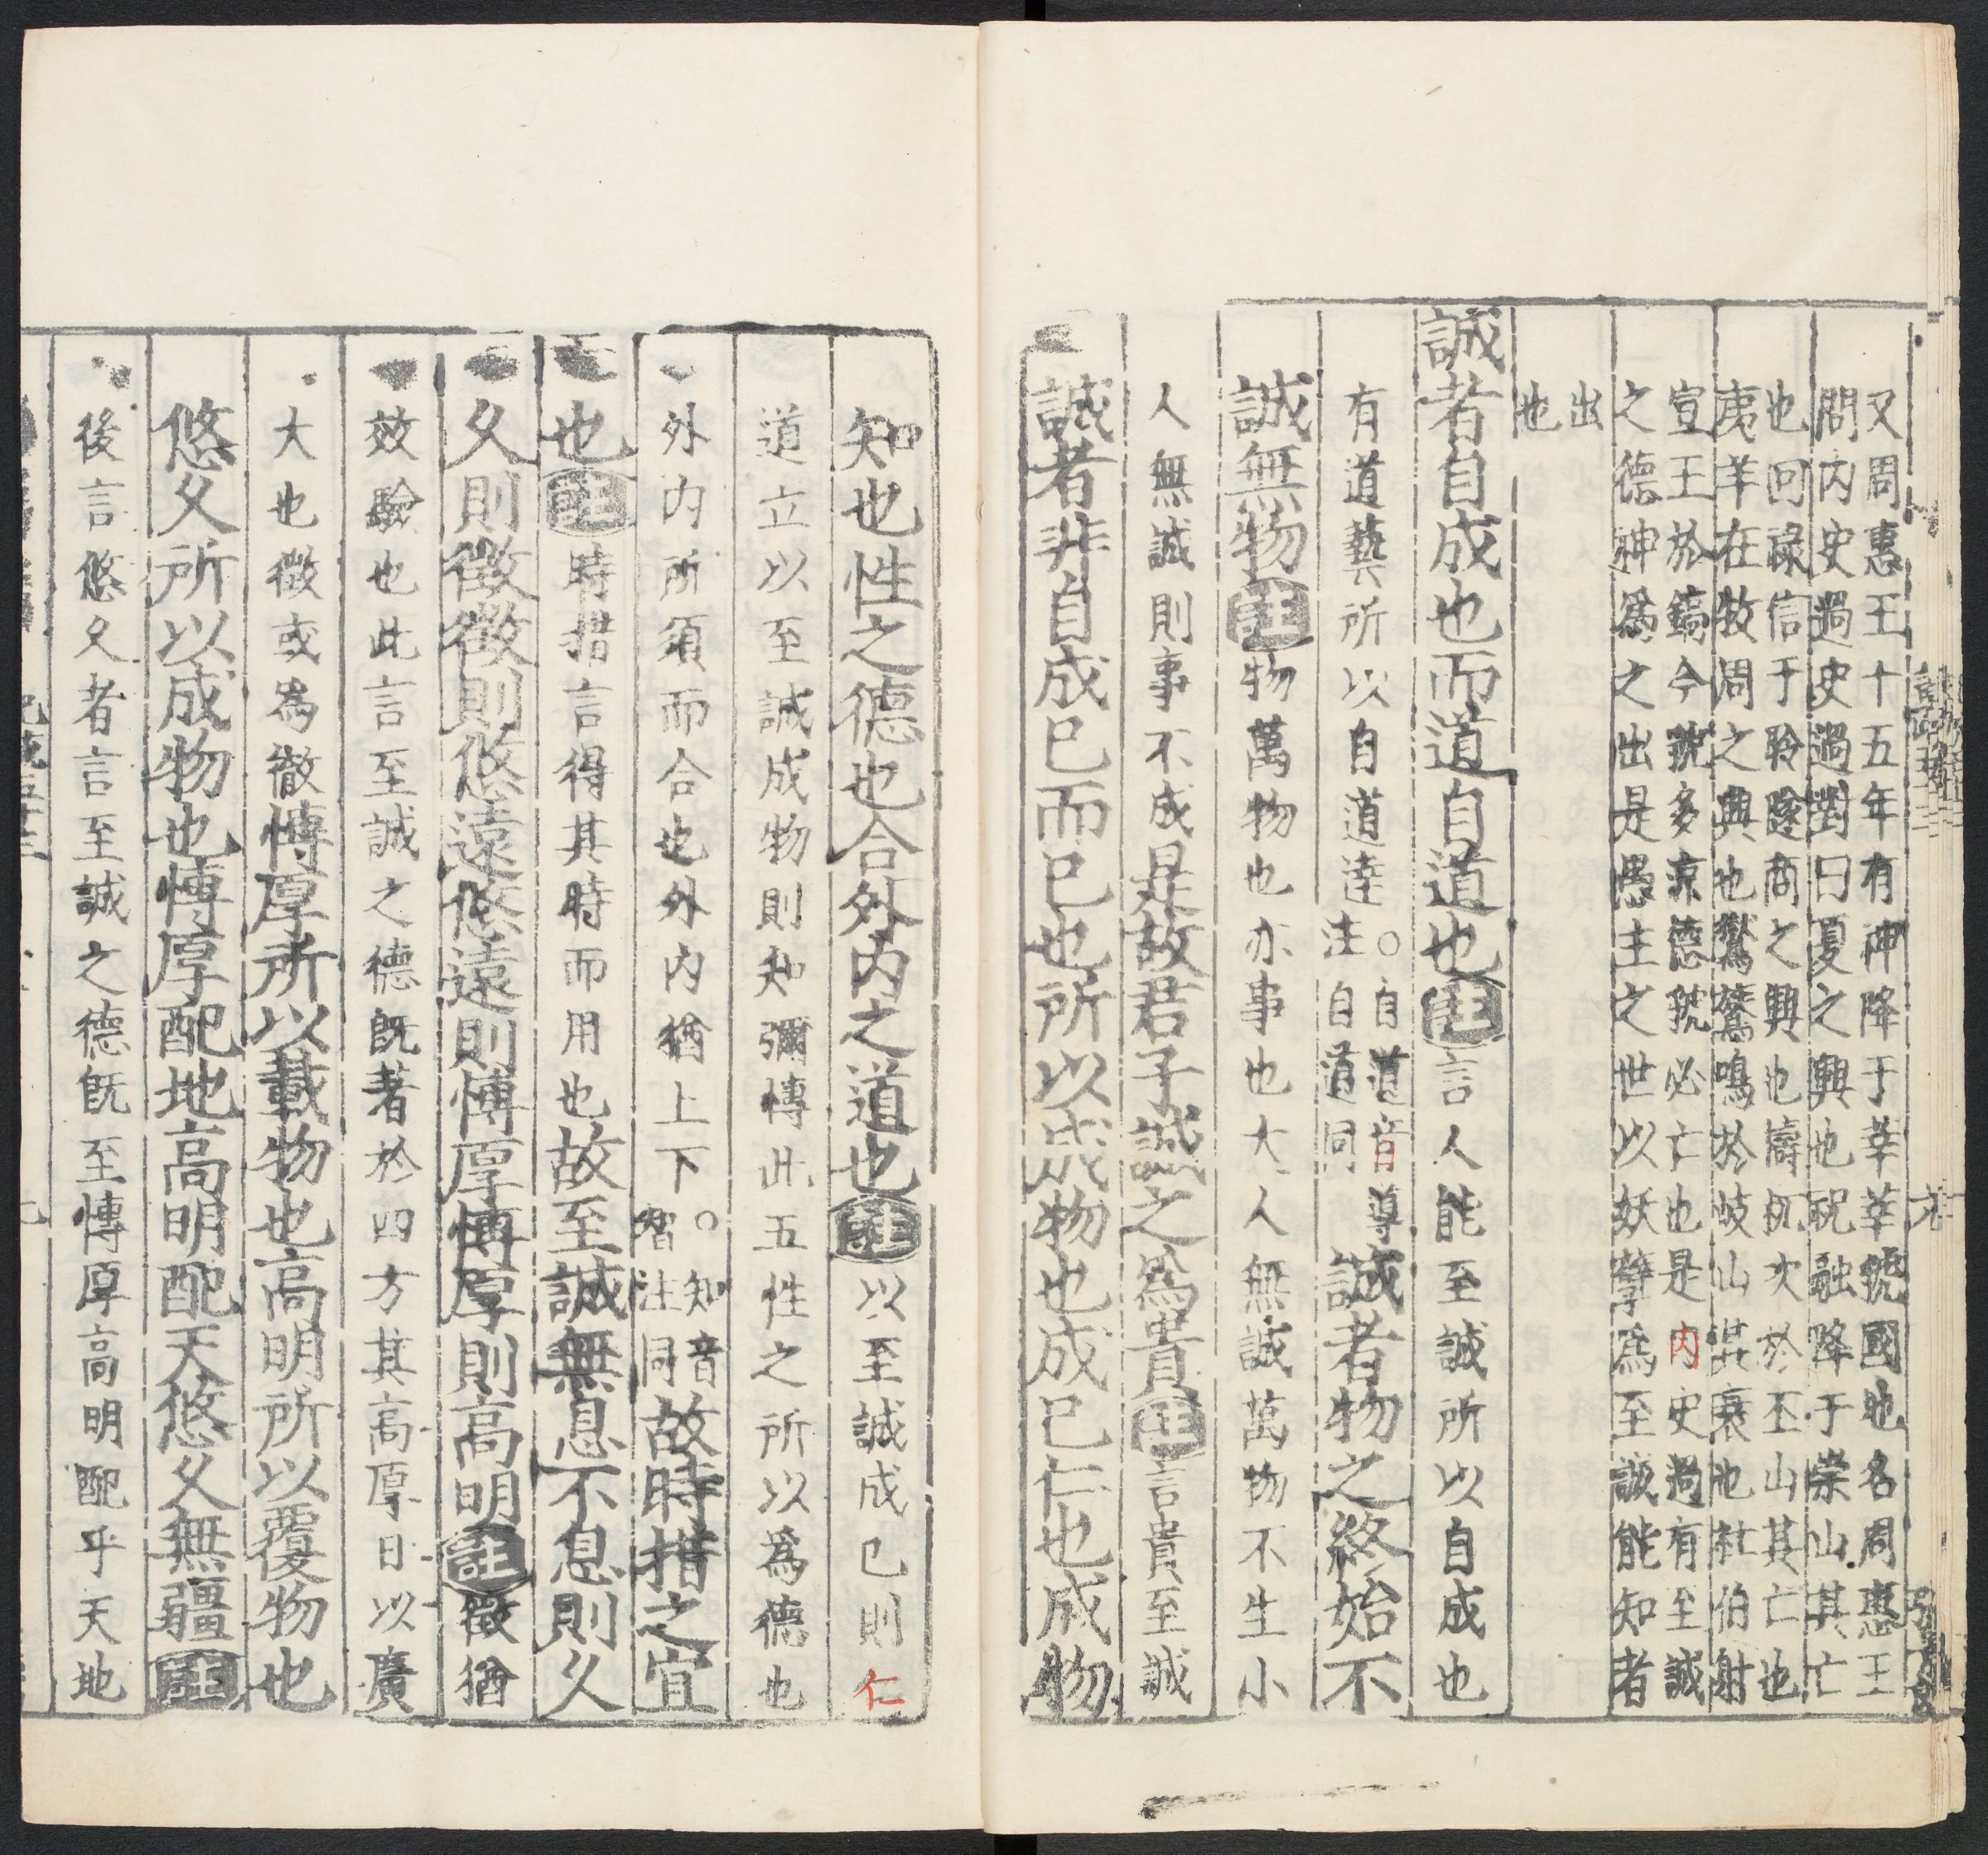 又周惠王十五年有神降于莘莘虢國也名周惠王
問内史過史過對曰夏之興也祝融降于崇山其亡
也回禄信于聆隧商之興也檮杌次於丕山其亡也
夷羊在牧周之興也鸑鷟鳴於岐山其衰也杜伯射
宣王於鎬今虢多涼德虢必亡也是内史過有至誠
之德神爲之出是愚主之世以妖孽爲至誠能知者
出
也
誠者自成也而道自道也註言人能至誠所以自成也
有道藝所以自道達○自道音導
注自道同
誠者物之終始不
誠無物註物萬物也亦事也大人無誠萬物不生小
人無誠則事不成是故君子誠之爲貴註言貴至誠
誠者非自成已而已也所以成物也成已仁也成物
知也性之德也合外内之道也註以至誠成已則仁
道立以至誠成物則知彌愽此五性之所以爲德也
外内所須而合也外内猶上下○知音
智注同
故時措之宜
也註時措言得其時而用也故至誠無息不息則久
久則徵徵則悠遠悠遠則愽厚愽厚則高明註徵猶
效驗也此言至誠之德既著於四方其高厚日以廣
大也徵或爲徹愽厚所以載物也高明所以覆物也
悠久所以成物也愽厚配地高明配天悠久無疆註
後言悠久者言至誠之德既至愽厚高明配乎天地